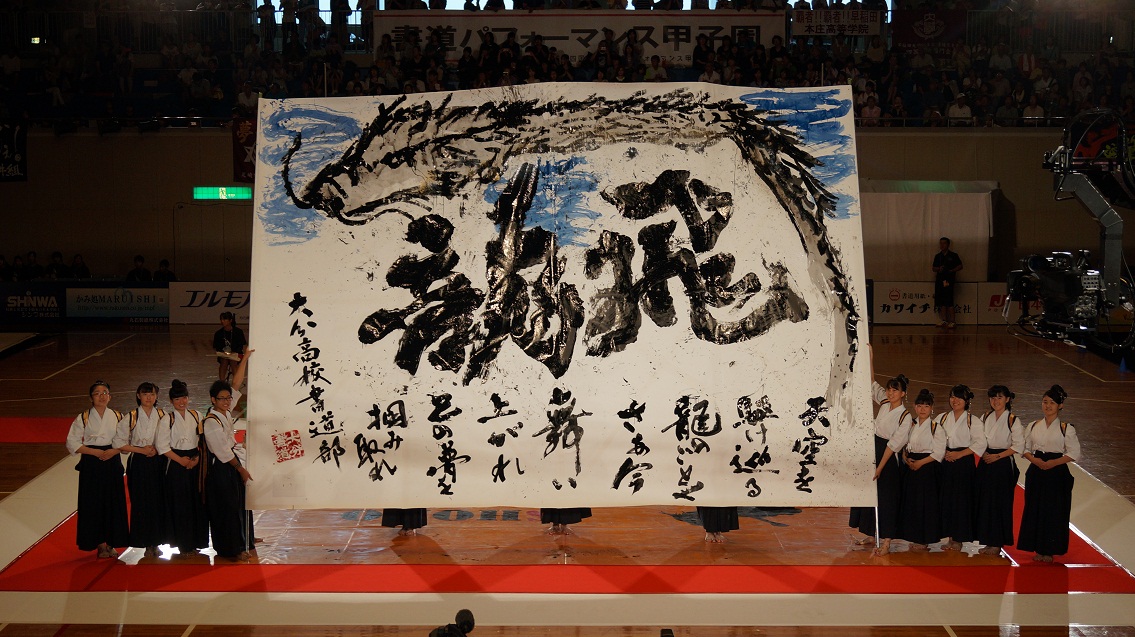 書道パフォーマンス甲子園
覇者!!覇者!!早稲田
本庄高等学院
飛翔
天空を
駆け巡る
龍のごとく
さあ今
舞い
上がれ
己の夢を
掴み取れ
大分高校書道部
SHINWA
エルモ